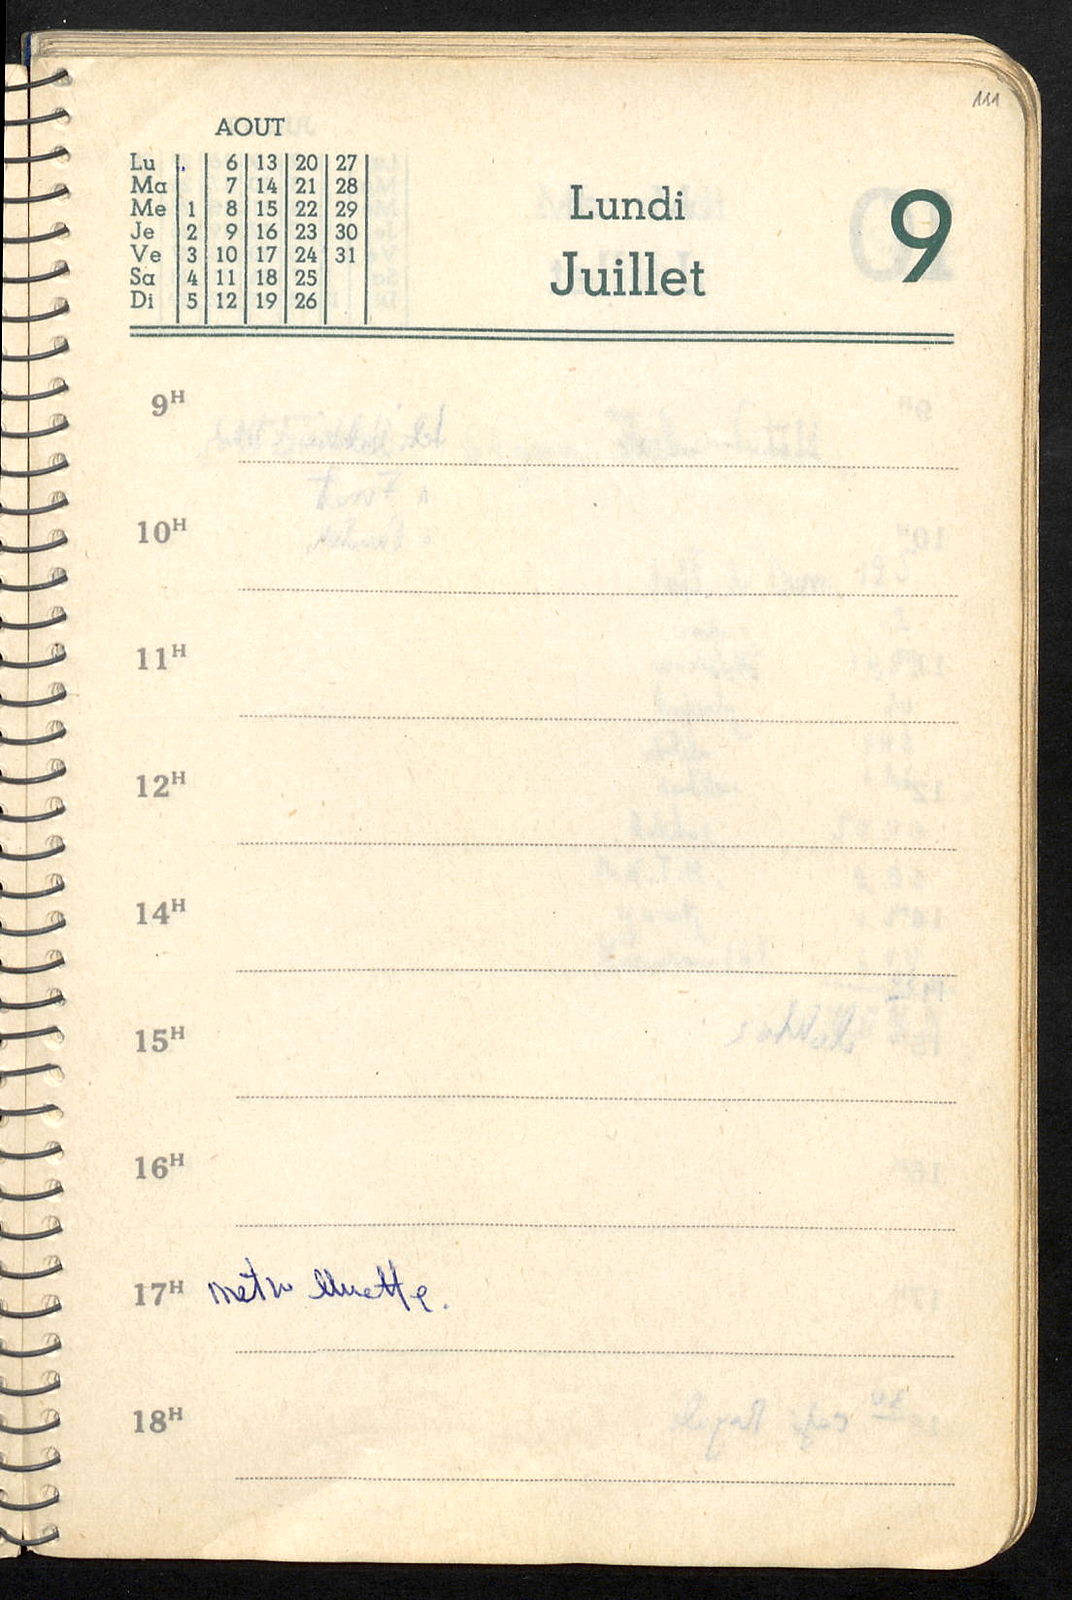 111
AOUT
Lu 6 13 20 27
Ma 7 14 21 28
Me 1 8 15 22 29
Je 2 9 16 23 30
Ve 3 10 17 24 31
Sa 4 11 18 25
Di 5 12 19 26
Lundi 9
Juillet
9H
10H
11H
12H
14H
15H
16H
17H métro Muette.
18H